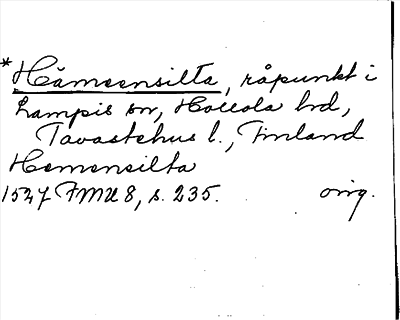 *Hämeensilta, råpunkt i
Lampis sn, Hollola hd,
Tavastehus l., Finland
Hemensilta
1547 FMU 8, s. 235. orig.